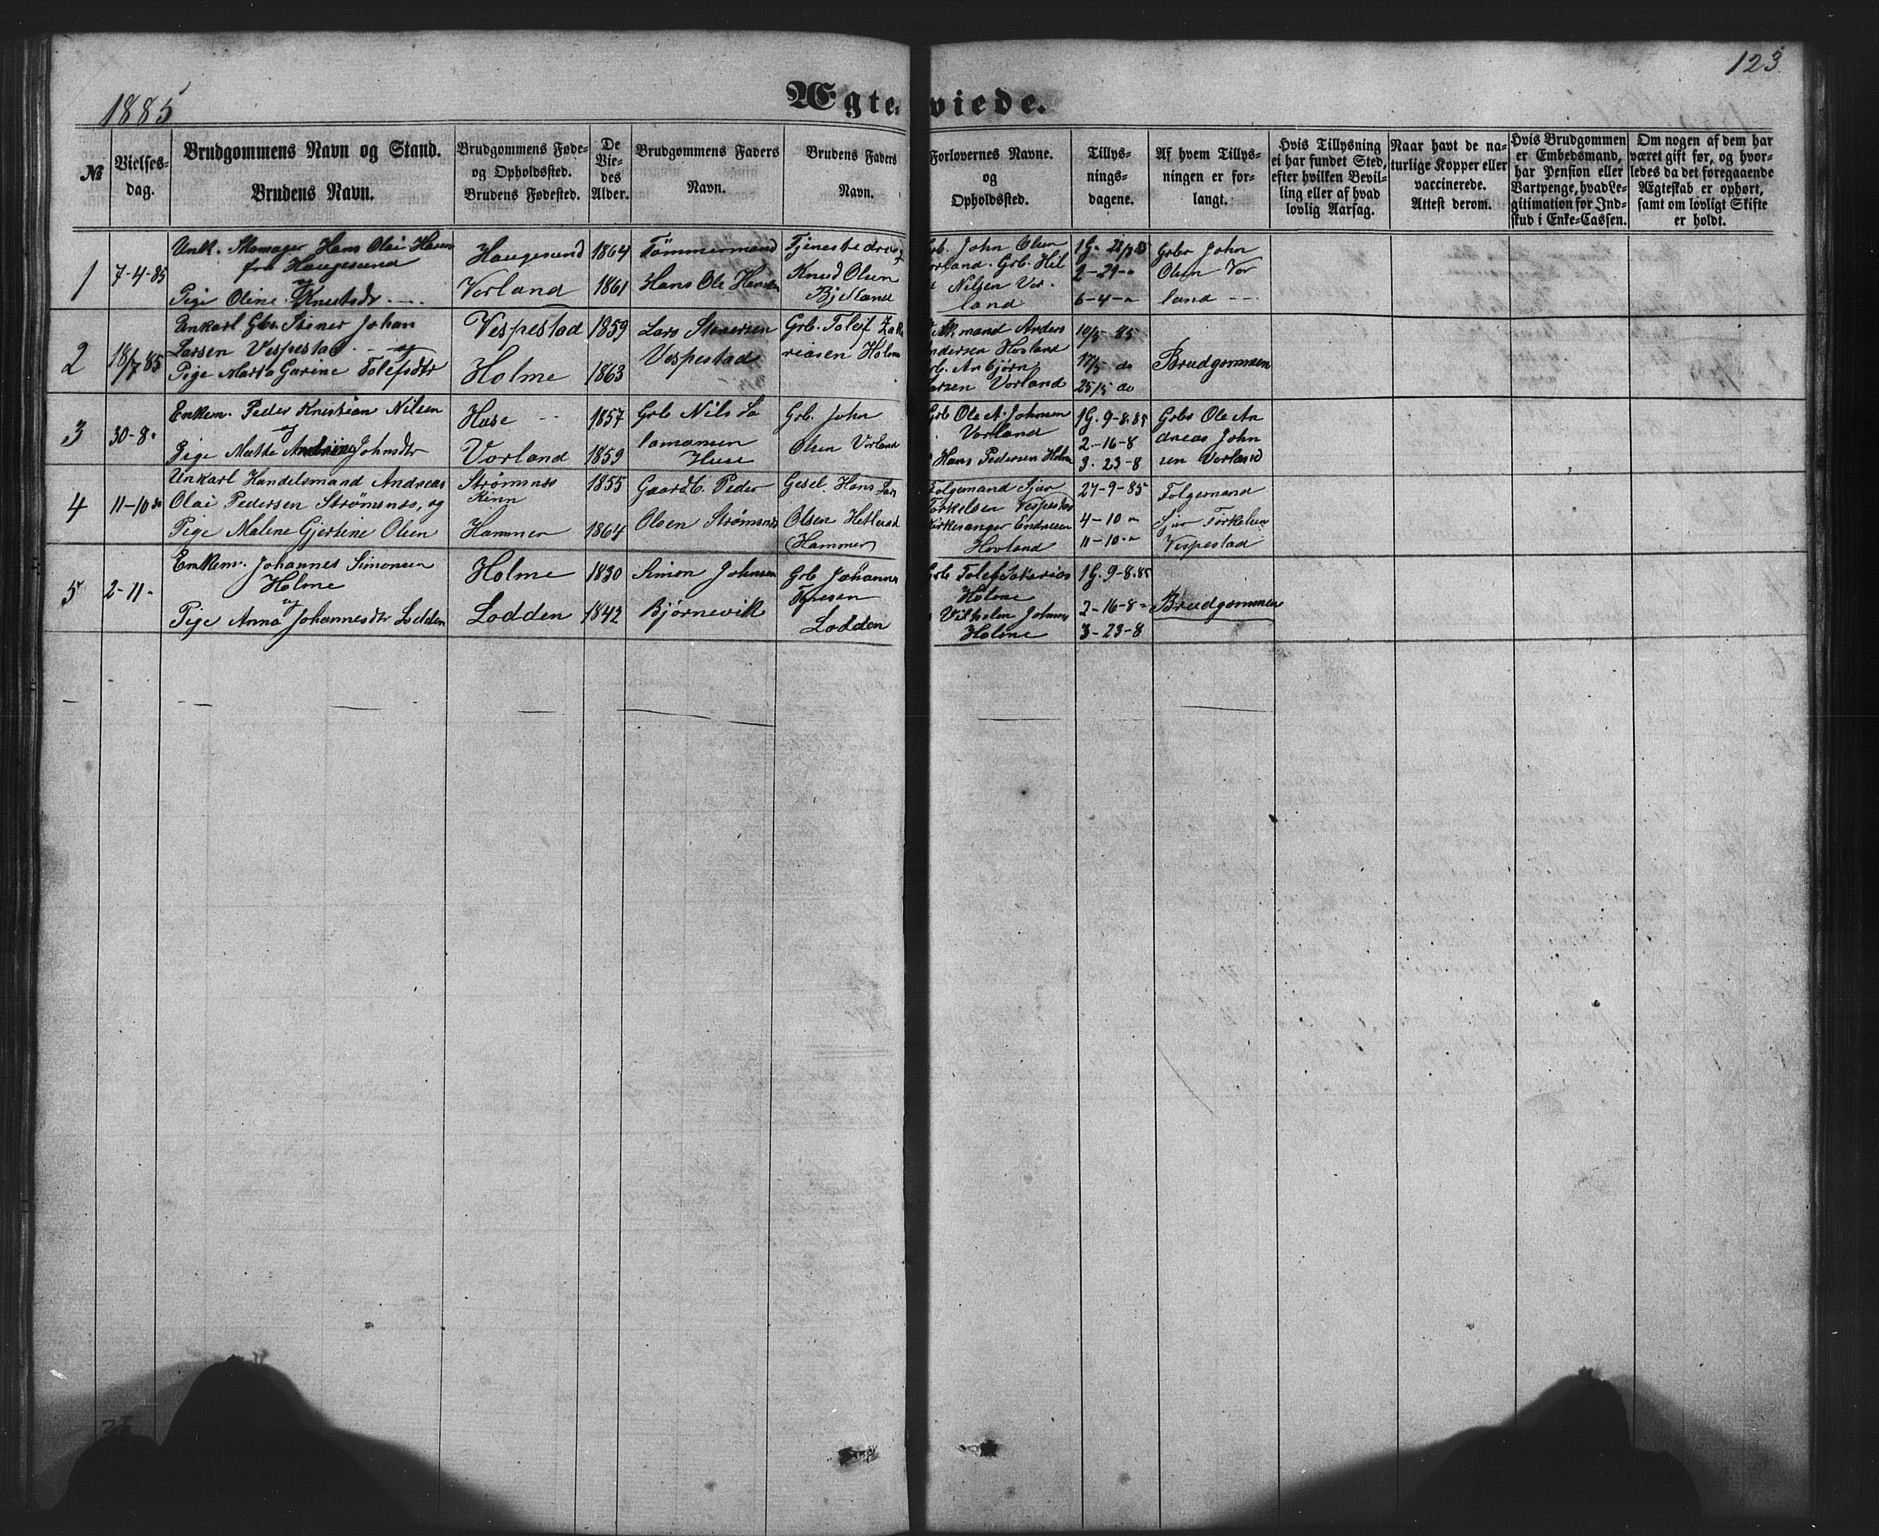 1885
Ægte viede.
123
№
Vielses-
dag.
Brudgommens Navn og Stand.
Brudens Navn.
Brudgommens Føde-
og Opholdssted.
Brudens Fødested.
De
Vie-
des
Alder.
Brudgommens Faders
Navn.
Brudens Faders
Navn.
Forlovernes Navne.
og
Opholdssted.
Tillys-
nings-
dagene.
Af hvem Tillys-
ningen er for-
langt.
Hvis Tillysning
ei har fundet Sted,
efter hvilken Bevil-
ling eller af hvad
lovlig Aarsag.
Naar havt de na-
turlige Kopper eller
vaccinerede.
Attest derom.
Hvis Brudgommen
er Embedsmand,
har Pension eller
Vartpenge, hvad Le-
gitimation for Ind-
skud i Enke-Cassen.
Om nogen af dem har
været gift før, og hvor-
ledes da det foregaaende
Ægteskab er ophørt,
samt om lovligt Skifte
er holdt.
1
7-4-85
Unk. Skomager Hans Olai Hansen
fra Haugesund
og
Pige Oline Knutsdr
Haugesund
Vorland
1864
1861
Tømmermand
Hans Ole Hansen
Tjenestedreng
Knud Olsen
Bjelland
Grb. John Olsen
Vorland. Grb. Hel
Nilsen Vor-
land
1G. 22/3 85
2-29-"
6-4-"
Grbr John
Olsen Vor
land
2
18/7 85
Unkarl Gbr. Stener Johan
Larsen Vespestad og
Pige Marta Garine Tolefsdtr
Vespestad
Holme
1859
1863
Lars Stenersen
Vespestad
Grb. Tolef Zaka
riasen Holme
Anders
Andersen Hovland
Grb. Anbjørn
Larsen Vorland
10/5 85
17/5 do
25/5 do
Brudgommen
3
30-8-
Enkem. Peder Kristian Nilsen
og
Pige Mette Andrine Johnsdtr
Huse
Vorland
1857
1859
Grb Nils Sa
lamonsen
Huse
Grb. John
Olsen Vorland
Grb Ole A. Johnsen
Vorland
Hans Pedersen Holme
1G. 9-8-85
2-16-8
3-23-8
Grbs Ole An
dreas John
sen Vorland
4
11-10 do
Unkarl Handelsmand Andreas
Olai Pedersen Strømsnes, og
Pige Malene Gjertine Olsen
Strømsnes
Kinn
Hammer
1855
1864
Gaardb. Peder
Olsen Strømsnes
Gesel. Hans Jan
Olsen Hetlesad
(Hammer)
Følgemand Sjur
Torkelsen Vespestad
Kirkesanger Endresen
Hovland
27-9-85
4-10-"
11-10-"
Følgemand
Sjur Torkelsen
Vespestad
5
2-11-
Enkem. Johannes Simonsen
Holme
og
Pige Anna Johannesdtr Lodden
Holme
Lodden
1830
1842
Simon Johnsen
Bjørnevik
Grb Johannes
Lodden
Grb Tolef Sakarias
Holme
Vilhelm Johnsen
Holme
1G. 9-8-85
2-16-8
3-23-8
Brudgommen